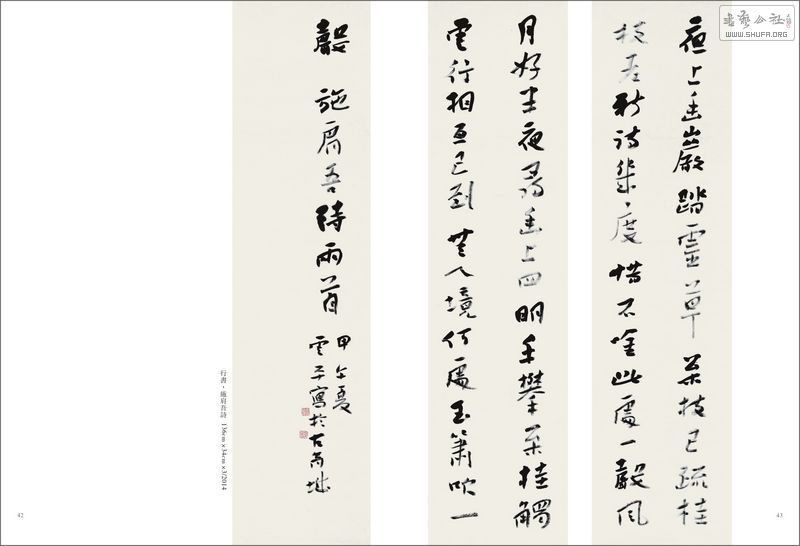 夜上幽巖踏靈草枩枝已疏桂
枝老新詩幾度惜不唫此處一聲風
月好半夜尋幽上四明手攀枩桂觸
雲行相互已到無人境何處玉簫吹一
聲 施肩吾詩兩首
甲午夏
雲平寫於古芮城
行書·施肩吾詩 136cm×34cm×3/2014
42
43
書藝公社
WWW.SHUFA.ORG